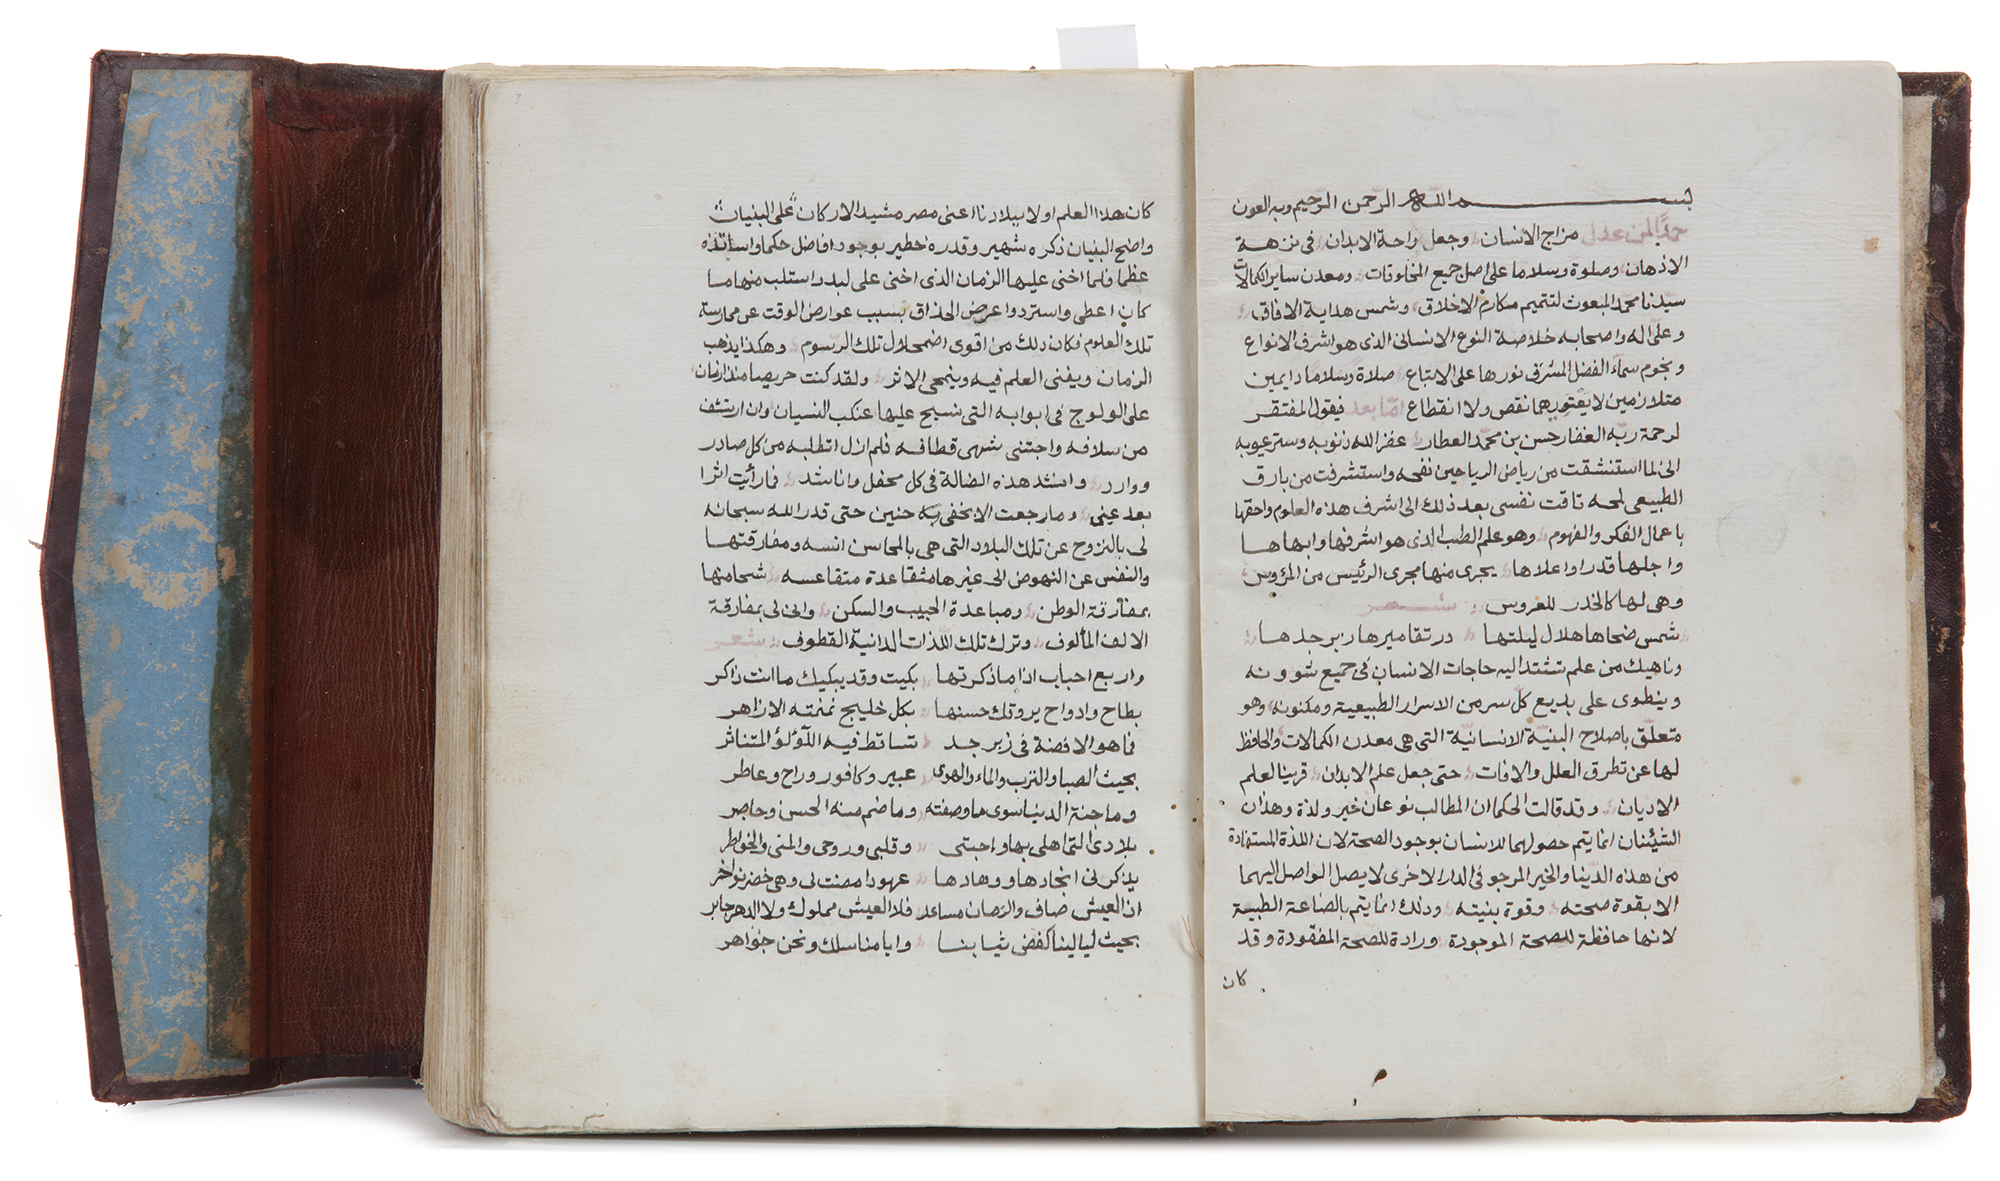 بسم الله الرحمن الرحيم وبه العون
حمدا لمن عدل مزاج الانسان وجعل راحة الابدان في نزهة
الاذهان وصلوة وسلاما على اصل جميع المخلوقات ومعدن ساير الكمالات
سيدنا محمد المبعوث لتتميم مكارم الاخلاق وشمس هداية الافاق
وعلى اله واصحابه خلاصة النوع الانسانى الذى هو اشرف الانواع
ونجوم سماء الفضل المشرق نورها على الاتباع صلاة وسلاما دايمين
متلازمين لا يعتورهما نقص ولا انقطاع اما بعد فيقول المفتقر
لرحمة ربه الغفار حسن بن محمد العطار غفر الله ذنوبه وستر عيوبه
انى لما استنشقت من رياض الرياحين نفحه واستشرفت من بارق
الطبيعى لمحه تاقت نفسى بعد ذلك الى اشرف هذه العلوم واحقها
باعمال الفكر والفهوم وهو علم الطب الذى هو اشرفها وابهاها
واجلها قدرا واعلاها يجرى منها مجرى الرئيس من المرؤس
وهى لها كالخدر للعروس شعر
شمس ضحاها هلال ليلتها در تقاصيرها زبرجدها
وناهيك من علم تشتد اليه حاجات الانسان فى جميع شوونه
وينطوى على بديع كل سر من الاسرار الطبيعية ومكنونه وهو
متعلق باصلاح البنية الانسانية التى هى معدن الكمالات والحافظ
لها عن تطرق العلل والافات حتى جعل علم الابدان قرينا لعلم
الاديان وقد قالت الحكما ان المطالب نوعان خير ولذة وهذان
الشيئان انما يتم حصولهما للانسان بوجود الصحة لان اللذة المستفادة
من هذه الدنيا والخير المرجو فى الدار الاخرى لا يصل الواصل اليهما
الا بقوة صحته وقوة بنيته وذلك انما يتم بالصناعة الطبية
لانها حافظة للصحة الموجودة ورادة للصحة المفقودة وقد
كان
3
كان هذا العلم اولا ببلادنا اعنى مصر مشيد الاركان على البنيان
واضح البنيان ذكره شهير وقدره خطير بوجود افاضل حكما واساتذه
عظما فلما اخنى عليها الزمان الذى اخنى على لبد واستلب منها ما
كان اعطى واسترد واعرض الحذاق بسبب عوارض الوقت عن ممارسة
تلك العلوم فكان ذلك من اقوى اضمحلال تلك الرسوم وهكذا يذهب
الزمان ويفنى العلم فيه وينمحى الاثر ولقد كنت حريصا منذ ازمان
على الولوج فى ابوابه التى نسج عليها عنكب النسيان وان ارتشف
من سلافه واجتنى شهى قطافه فلم ازل اتطلبه من كل صادر
ووارد وانشد هذه الضالة فى كل محفل واناشد فما رأيت اثرا
بعد عينى وما رجعت الا بخفى حنين حتى قدر الله سبحانه
لى بالنزوح عن تلك البلاد التى هى بالمحاسن انسه ومفارقتها
والنفس عن النهوض الى غيرها متقاعدة متقاعسه شحا منها
بمفارقة الوطن ومباعدة الحبيب والسكن وانى لى بمفارقة
الالف المألوف وترك تلك اللذات الدانية القطوف شعر
واربع احباب اذا ما ذكرتها بكيت وقد يبكيك ما انت ذاكر
بطاح وادواح يروتك حسنها بكل خليج نمنمته الازاهر
فما هو الا فضة فى زبرجد تساقط فيه اللؤلؤ المتناثر
بحيث الصبا والترب والماء والهوى عبير وكافور وراح وعاطر
وما جنة الدنيا سوى ما وصفته وما ضم منه الحسن وحاضر
بلادى التى اهلى بها واحبتى وقلبى وروحى والمنى والخواطر
يذكرنى انجادها ووهادها عهودا مضت لى وهى خضر نواضر
اذ العيش صاف والزمان مساعد فلا العيش مملول ولا الدهر جابر
بحيث ليالينا كغض شبابنا وايامنا سلك ونحن جواهر